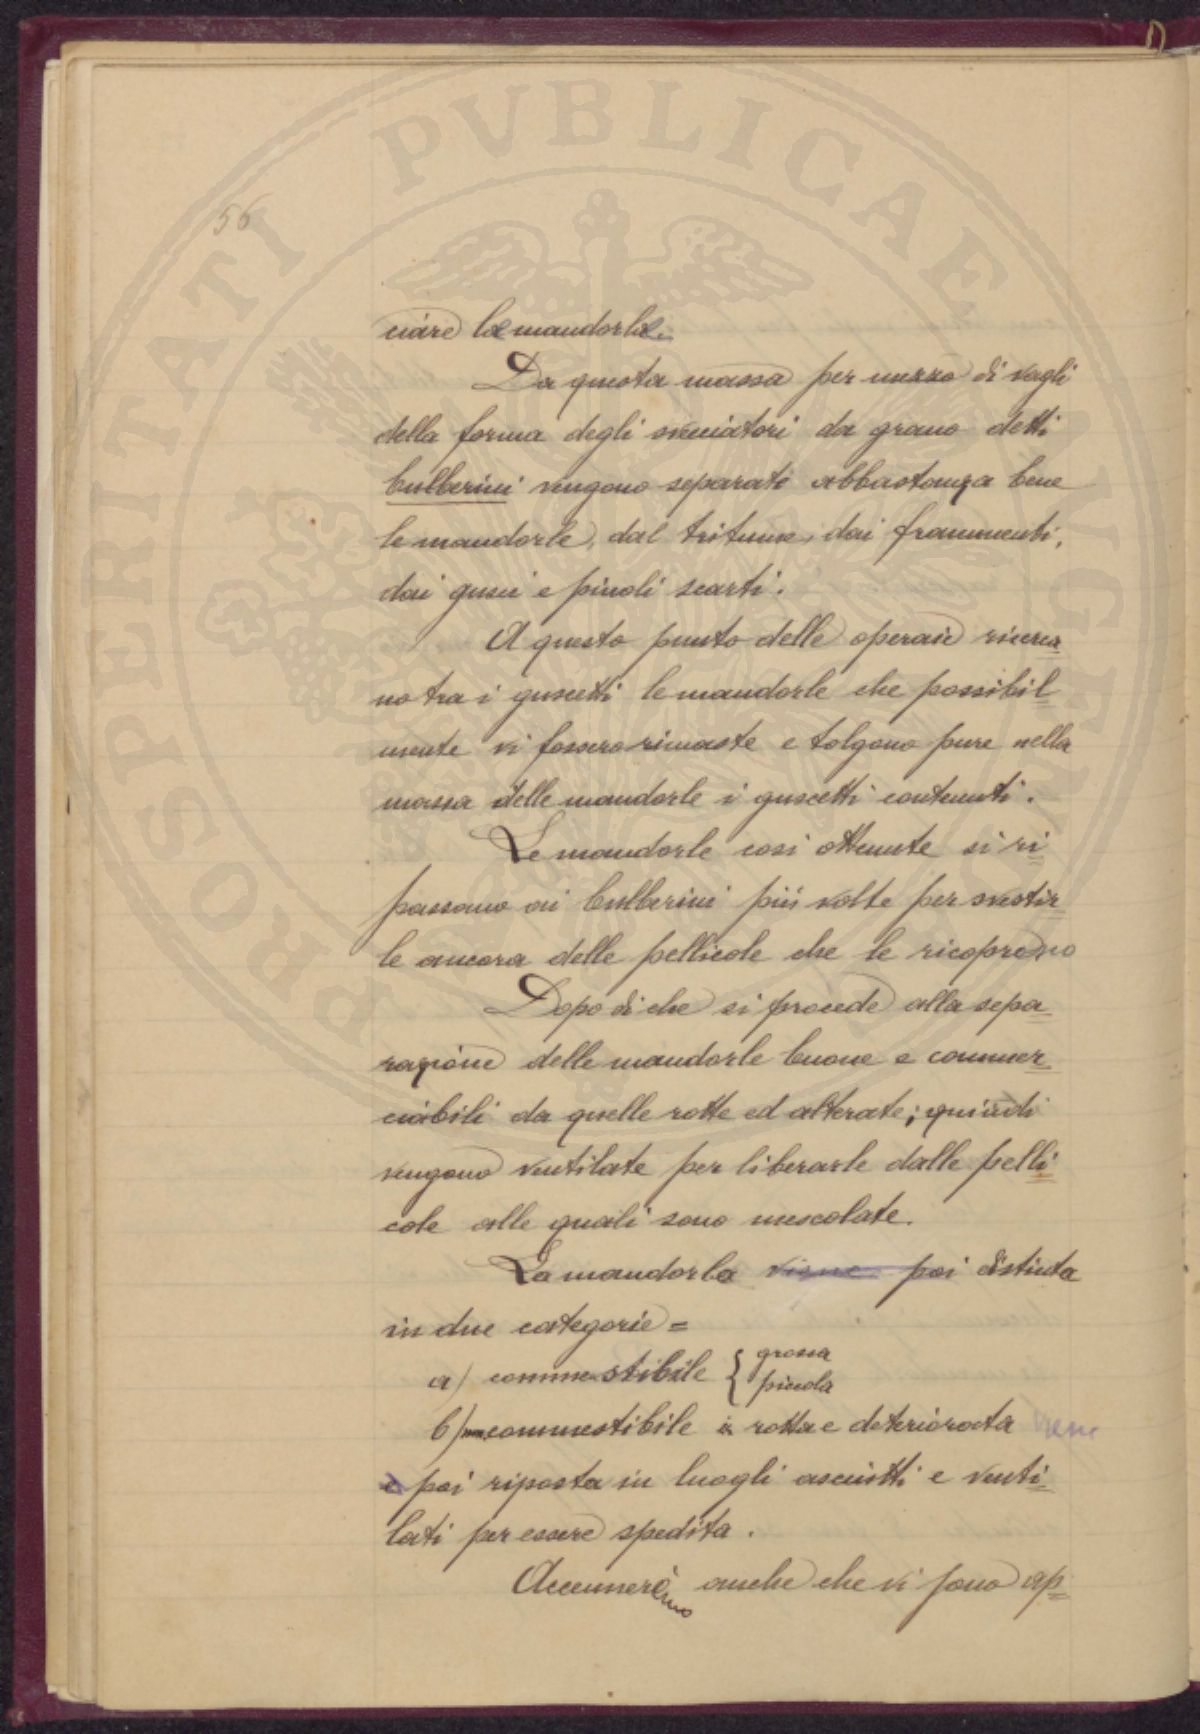 56
ciare le mandorle.
Da questa massa per mezzo di vagli
della forma degli svecciatori da grano detti
bulberini vengono separati abbastanza bene
le mandorle, dal tritume, dai frammenti,
dai gusci e pinoli scarti.
A questo punto delle operaie ricerca
no tra i guscetti le mandorle che possibil
mente vi fossero rimaste e tolgono pure nella
massa delle mandorle i guscetti contenuti.
Le mandorle così ottenute si ri
passano ai bulberini più volte per svestir
le ancora delle pellicole che le ricoprono
Dopo di che si procede alla sepa
razione delle mandorle buone e commer
ciabili da quelle rotte ed alterate; quindi
vengono ventilate per liberarle dalle pelli
cole alle quali sono mescolate.
La mandorla viene poi distinta
in due categorie =
a) commestibile { grossa
piccola
b) commestibile rotta e deteriorata viene
e poi riposta in luoghi asciutti e venti
lati per essere spedita.
Accenneremo anche che vi sono ap
PROSPERITATI PVBLICAE AVGENDAE